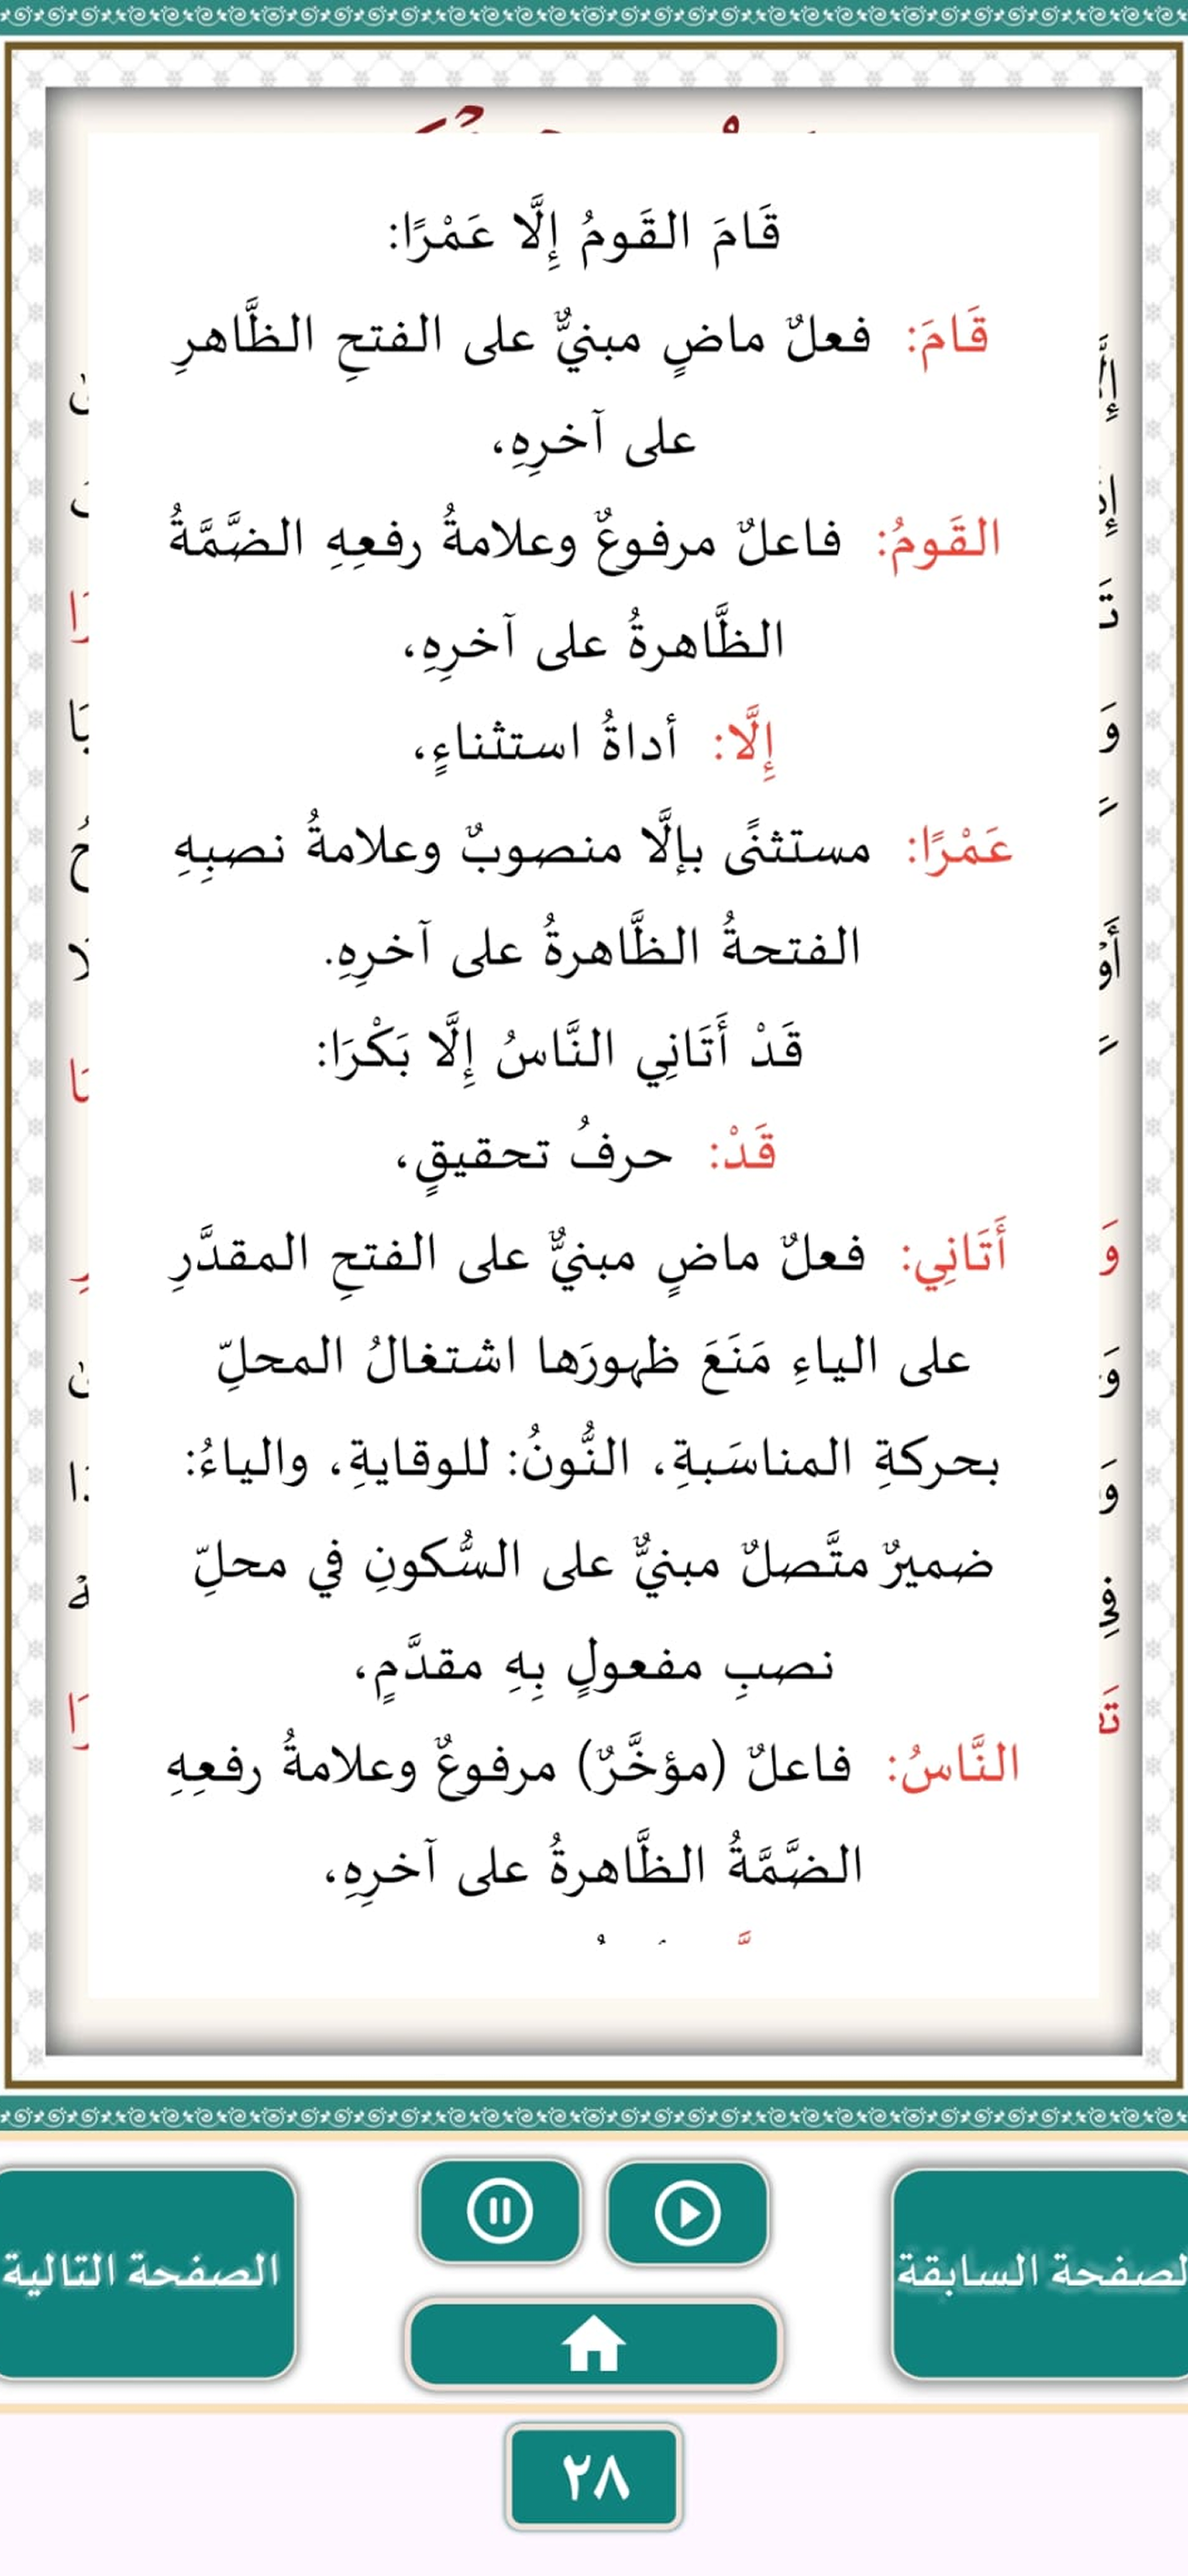 قَامَ القَومُ إِلَّا عَمْرًا:
قَامَ: فعلٌ ماضٍ مبنيٌّ على الفتحِ الظَّاهرِ
على آخرِهِ،
القَومُ: فاعلٌ مرفوعٌ وعلامةُ رفعِهِ الضَّمَّةُ
الظَّاهرةُ على آخرِهِ،
إِلَّا: أداةُ استثناءٍ،
عَمْرًا: مستثنًى بإلَّا منصوبٌ وعلامةُ نصبِهِ
الفتحةُ الظَّاهرةُ على آخرِهِ.
قَدْ أَتَانِي النَّاسُ إِلَّا بَكْرَا:
قَدْ: حرفُ تحقيقٍ،
أَتَانِي: فعلٌ ماضٍ مبنيٌّ على الفتحِ المقدَّرِ
على الياءِ مَنَعَ ظهورَها اشتغالُ المحلِّ
بحركةِ المناسَبةِ، النُّونُ: للوقايةِ، والياءُ:
ضميرٌ متَّصلٌ مبنيٌّ على السُّكونِ في محلِّ
نصبِ مفعولٍ بِهِ مقدَّمٍ،
النَّاسُ: فاعلٌ (مؤخَّرٌ) مرفوعٌ وعلامةُ رفعِهِ
الضَّمَّةُ الظَّاهرةُ على آخرِهِ،
لصفحة السابقة
الصفحة التالية
٢٨